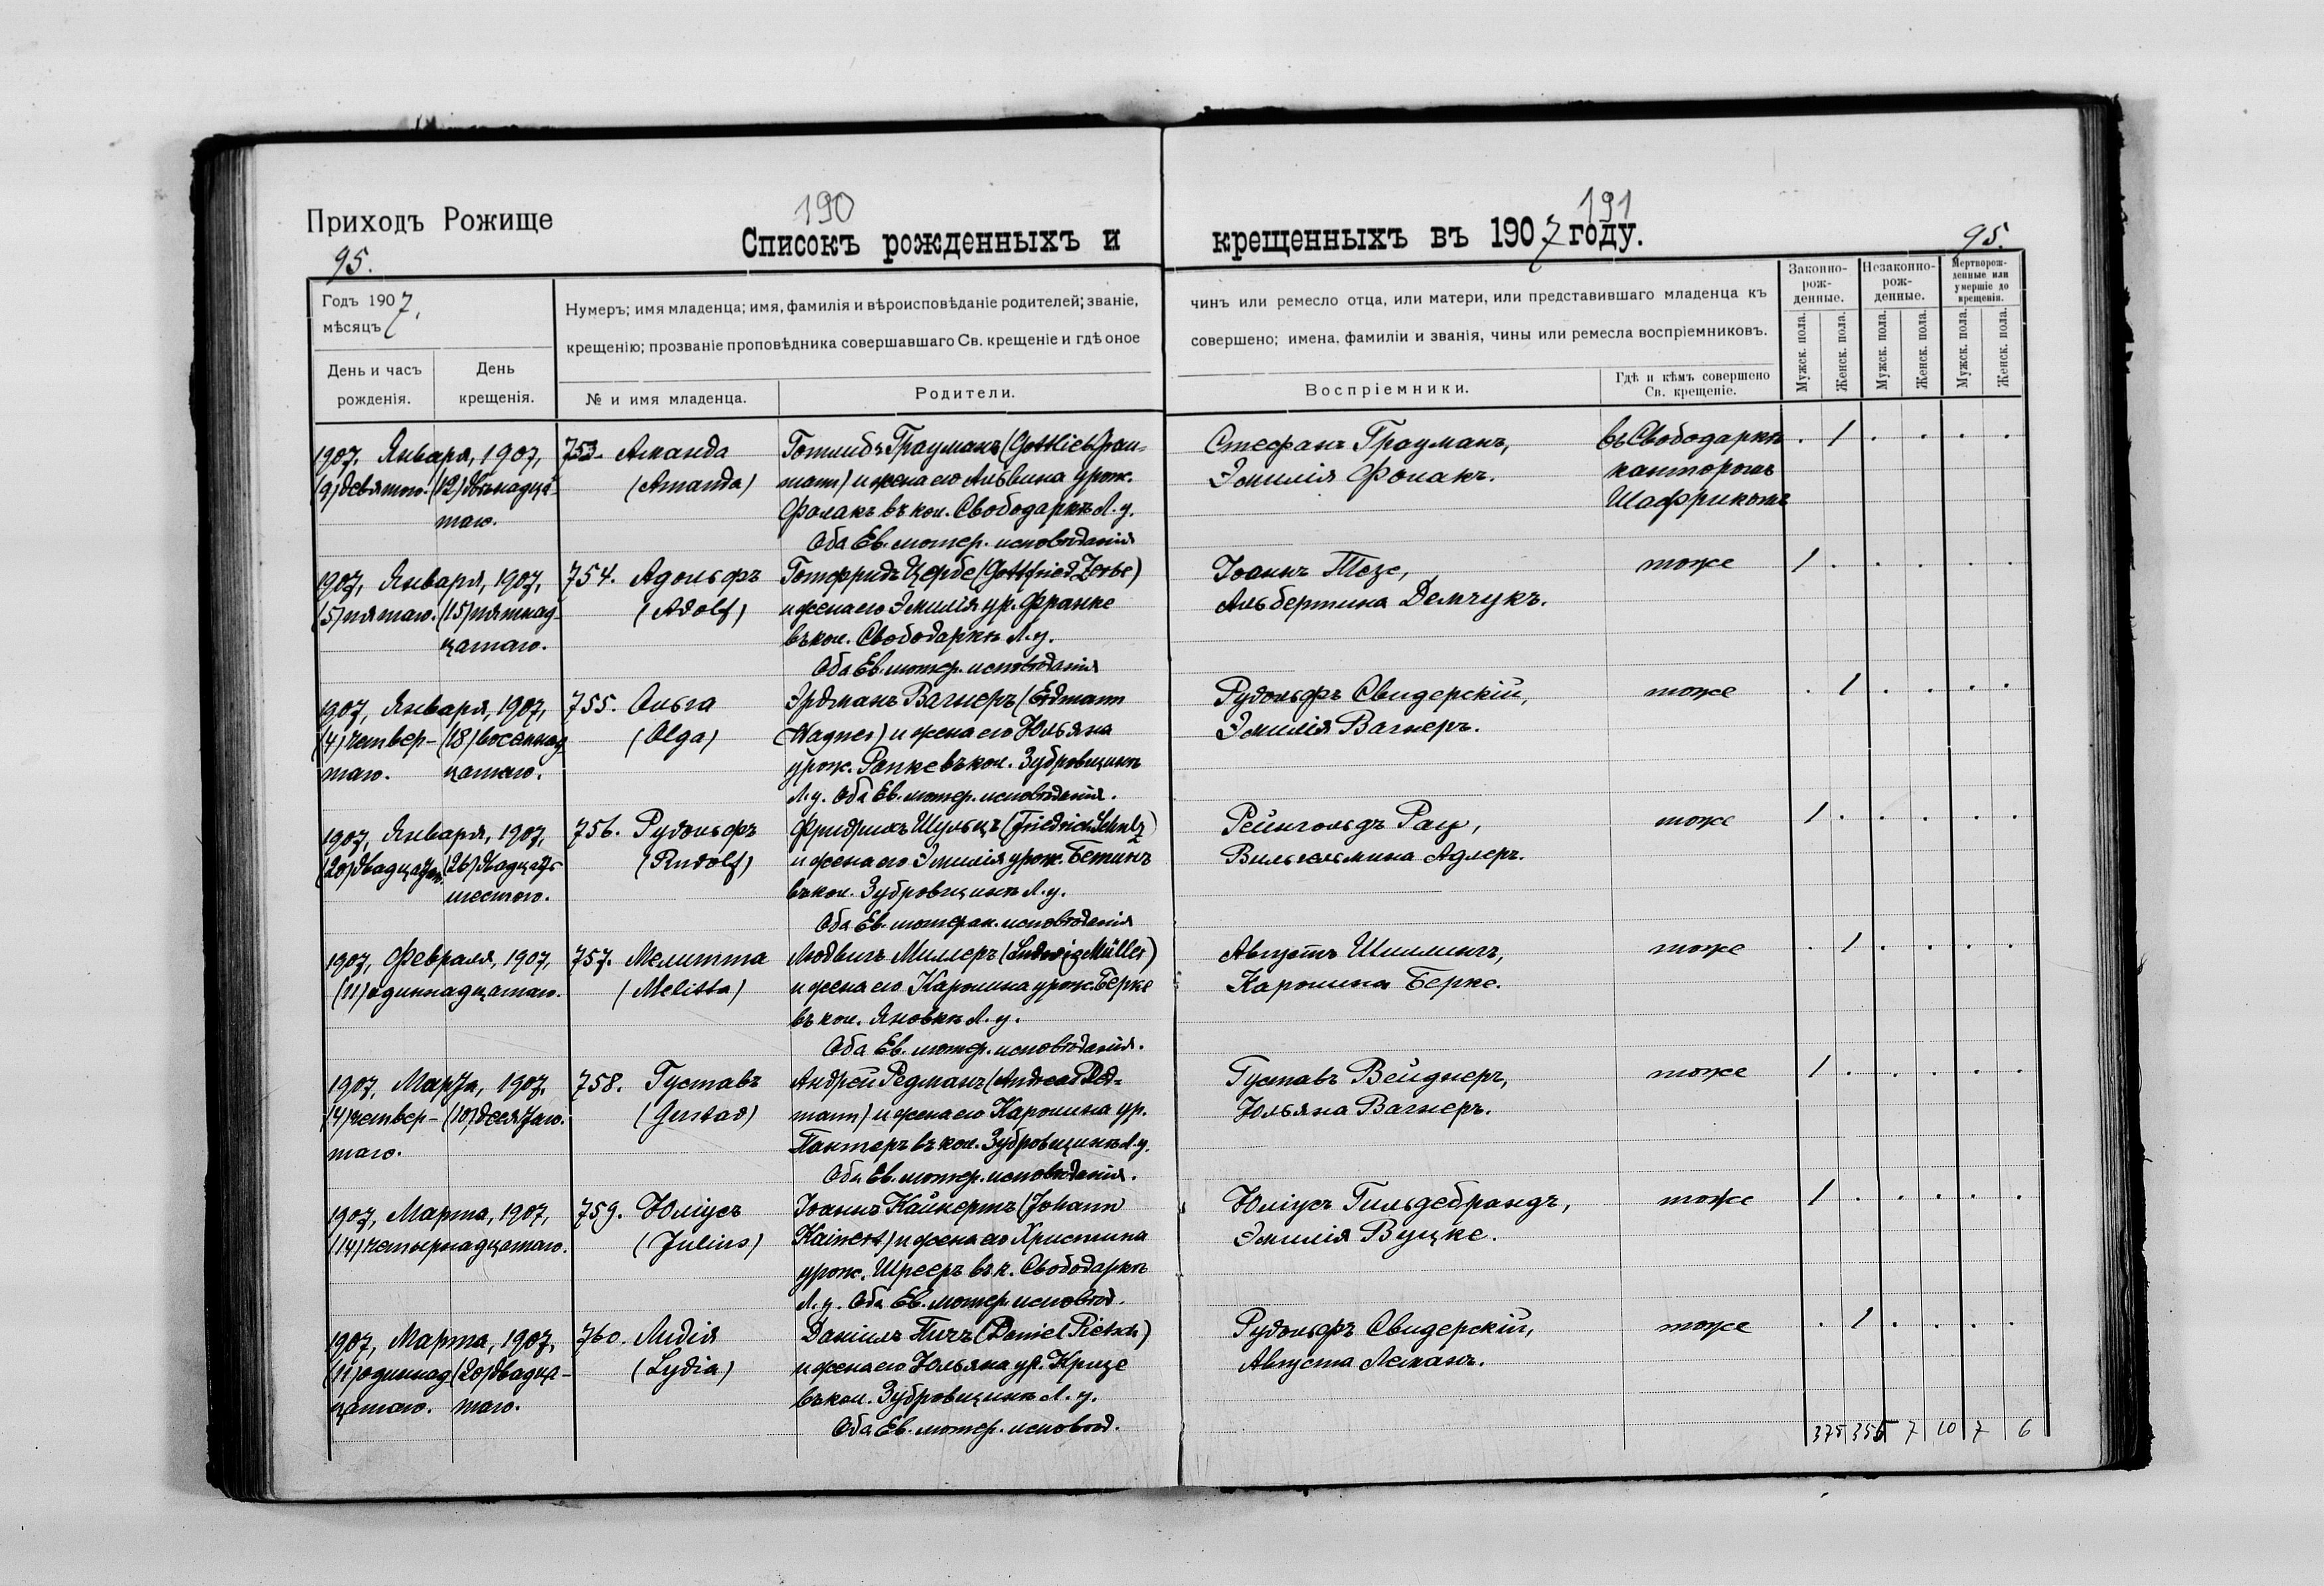 190
191
Приходъ Рожище
Списокъ рожденныхъ и крещенныхъ въ 1907 году.
95.
95.
Годъ 1907.
мѣсяцъ
День и часъ рожденія.
День крещенія.
Нумеръ; имя младенца; имя, фамилія и вѣроисповѣданіе родителей; званіе,
крещенію; прозваніе проповѣдника совершавшаго Св. крещеніе и гдѣ оное
№ и имя младенца.
Родители.
чинъ или ремесло отца, или матери, или представившаго младенца къ
совершено; имена, фамиліи и званія, чины или ремесла воспріемниковъ.
Воспріемники.
Гдѣ и кѣмъ совершено Св. крещеніе.
Законно-рож-денные.
Незаконно-рож-денные.
Мертворож-денные или умершіе до крещенія.
Мужск. пола.
Женск. пола.
Мужск. пола.
Женск. пола.
Мужск. пола.
Женск. пола.
1907, Января, 1907,
(9) девятаго. (12) двѣнадца-
таго.
753. Аманда
(Amanda)
Готлибъ Грауманъ (Gottlieb Grau-
mann) и жена его Альвина урож.
Фолакъ въ кол. Свободаркѣ Л. у.
Оба Ев. лютер. исповѣданія
Стефанъ Грауманъ,
Эмилія Фолакъ.
въ Свободаркѣ
канторомъ
Шафрикомъ
. 1 . . . .
1907, Января, 1907,
(5) пятаго. (15) пятнад-
цатаго.
754. Адольфъ
(Adolf)
Готфридъ Цербе (Gottfried Zerbe)
и жена его Эмилія ур. Франке
въ кол. Свободаркѣ Л. у.
Оба Ев. лютер. исповѣданія
Іоаннъ Тезе,
Альбертина Демчукъ.
тоже
1 . . . . .
1907, Января, 1907,
(4) четвер- (18) восемнад
таго. цатаго.
755. Ольга
(Olga)
Эрдманъ Вагнеръ (Erdmann
Wagner) и жена его Юльяна
урож. Рапке въ кол. Зубровщинѣ
Л. у. Оба Ев. лютер. исповѣданія.
Рудольфъ Свидерскій,
Эмилія Вагнеръ.
тоже
. 1 . . . .
1907, Января, 1907,
(20) двадцатаго. (26) двадцать
шестого.
756. Рудольфъ
(Rudolf)
Фридрихъ Шульцъ (Friedrich Schulz)
и жена его Эмилія урож. Бетинъ
въ кол. Зубровщинѣ Л. у.
Оба Ев. лютеран. исповѣданія
Рейнгольдъ Рац,
Вильгельмина Адлеръ.
тоже
1 . . . . .
1907, Февраля, 1907,
(11) одиннадцатаго.
757. Мелитта
(Melitta)
Людвигъ Миллеръ (Ludwig Müller)
и жена его Каролина урож. Берке
въ кол. Яновкѣ Л. у.
Оба Ев. лютер. исповѣданія.
Августъ Шиллингъ,
Каролина Берке.
тоже
. 1 . . . .
1907, Марта, 1907.
(4) четвер- (10) десятаго.
таго.
758. Густавъ
(Gustav)
Андрей Редманъ (Andreas Red-
mann) и жена его Каролина ур.
Пантеръ въ кол. Зубровщинѣ Л. у.
Оба Ев. лютер. исповѣданія.
Густавъ Вейднеръ,
Юльяна Вагнеръ.
тоже
1 . . . . .
1907, Марта, 1907,
(14) четырнадцатаго.
759. Юліусъ
(Julius)
Іоаннъ Кайнертъ (Johann
Kainert) и жена его Христина
урож. Шреєръ въ к. Свободаркѣ
Л. у. Оба Ев. лютер. исповѣд.
Юліусъ Гильдебрандъ,
Эмилія Вуцке.
тоже
1 . . . . .
1907, Марта, 1907,
(11) одиннад (20) двадца-
цатаго. таго.
760. Лидія
(Lydia)
Даніилъ Пичъ (Daniel Pietsch)
и жена его Юльяна ур. Кризе
въ кол. Зубровщинѣ Л. у.
Оба Ев. лютер. исповѣд.
Рудольфъ Свидерскій,
Августа Леманъ.
тоже
. 1 . . . .
375 355 7 10 7 6